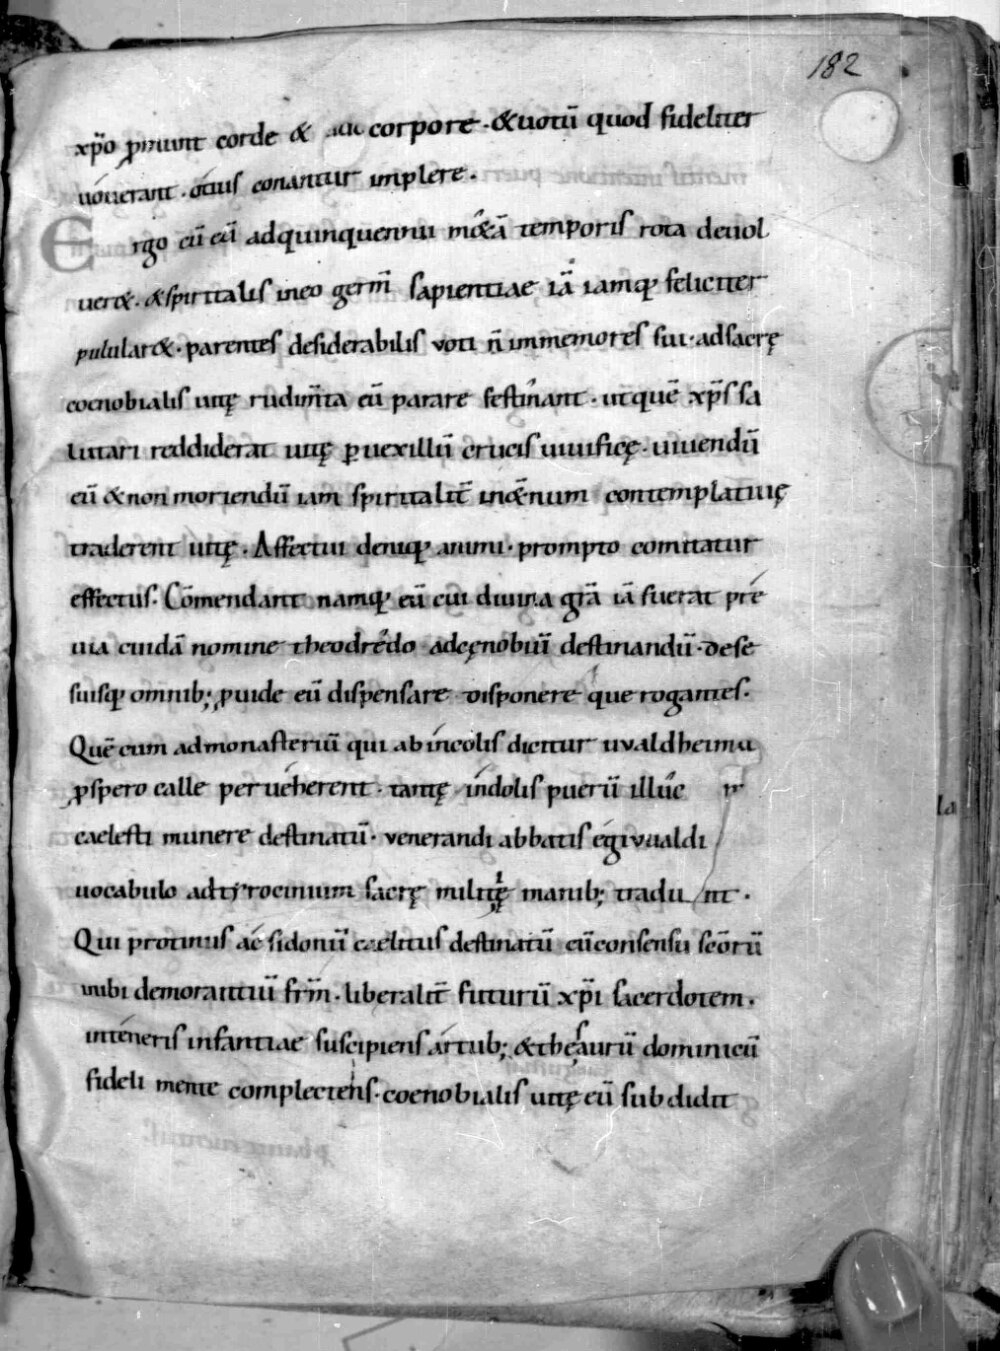 182
xp̄o ꝓmunt corde & corpore · & uotū quod fideliter
uouerant · otius conantur implere ·
Ergo cū eū ad quinquennii m&ā temporis rota deuol
uer& · & spiritalis in eo germ̄ sapientiae iā iamq; feliciter
pulular& · parentes desiderabilis voti n̄ inmemores sui · ad sacrę
coenobialis uitę rudim̄ta eū parare festinant · ut quē xp̄s sa
lutari reddiderat uitę ꝑ uexillū crucis uiuificę · uiuendū
eū & non moriendū iam spiritalit̄ in &̄num contemplatiuę
traderent uitę · Affectui deniq; animi · prompto comitatur
effectus · Cōmendant namq; eū cui diuina gr̄a iā fuerat pre
uia cuidā nomine theodredo ad cęnobiū destinandū · de se
suisq; omnib; ꝓuide eū dispensare disponere que rogantes ·
Quē cum ad monasteriū qui ab incolis dicitur uualdheim
ꝓspero calle perueherent · tantę indolis puerū illuc
caelesti munere destinatū · venerandi abbatis egiuualdi
uocabulo ad tyrocinium sacrę militię manib; tradunt ·
Qui protinus ac si donū caelitus destinatū eū consensu sc̄orū
inibi demorantiū fr̄m · liberalit̄ futurū xp̄i sacerdotem ·
in teneris infantiae suscipiens artub; & thesaurū dominicū
fideli mente complectens · coenobialis uitę eū subdidit
la